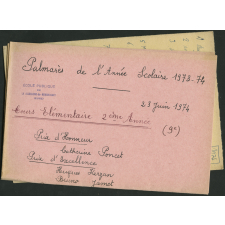 Palmarès de l'Année Scolaire 1973-74
23 Juin 1974
Cours Elémentaire 2ème Année
(9e)
Prix d'Honneur
Catherine Poncet
Prix d'Excellence
Hugues
Bruno Jamet